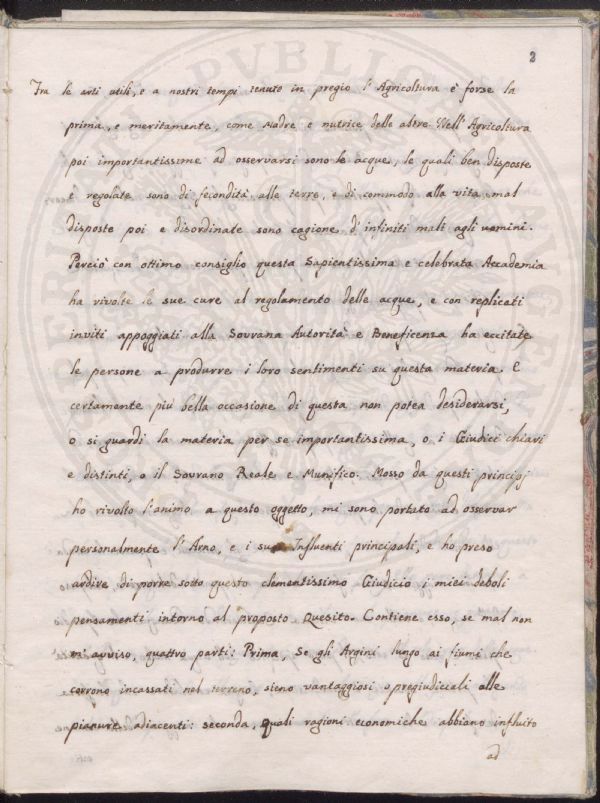 2
Tra le arti utili, e a nostri tempi tenute in pregio l'Agricoltura è forse la
prima, e meritamente, come Madre e nutrice delle altre. Nell'Agricoltura
poi importantissime ad osservarsi sono le acque, le quali ben disposte
e regolate sono di fecondità alle terre, e di commodo alla vita, mal
disposte poi e disordinate sono cagione d'infiniti mali agli uomini.
Perciò con ottimo consiglio questa Sapientissima e celebrata Accademia
ha rivolte le sue cure al regolamento delle acque, e con replicati
inviti appoggiati alla Sovrana Autorità e Beneficenza ha eccitate
le persone a produrre i loro sentimenti su questa materia. E
certamente più bella occasione di questa non potea desiderarsi,
o si guardi la materia per se importantissima, o i Giudici chiari
e distinti, o il Sovrano Reale e Munifico. Mosso da questi principj
ho rivolto l'animo a questo oggetto, mi sono portato ad osservar
personalmente l'Arno, e i suoi Influenti principali, e ho preso
ardire di porre sotto questo clementissimo Giudicio i miei deboli
pensamenti intorno al proposto Quesito. Contiene esso, se mal non
m'avviso, quattro parti: Prima, Se gli Argini lungo ai fiumi che
corrono incassati nel terreno, sieno vantaggiosi o pregiudiciali alle
pianure adiacenti: seconda, quali ragioni economiche abbiano influito
ad